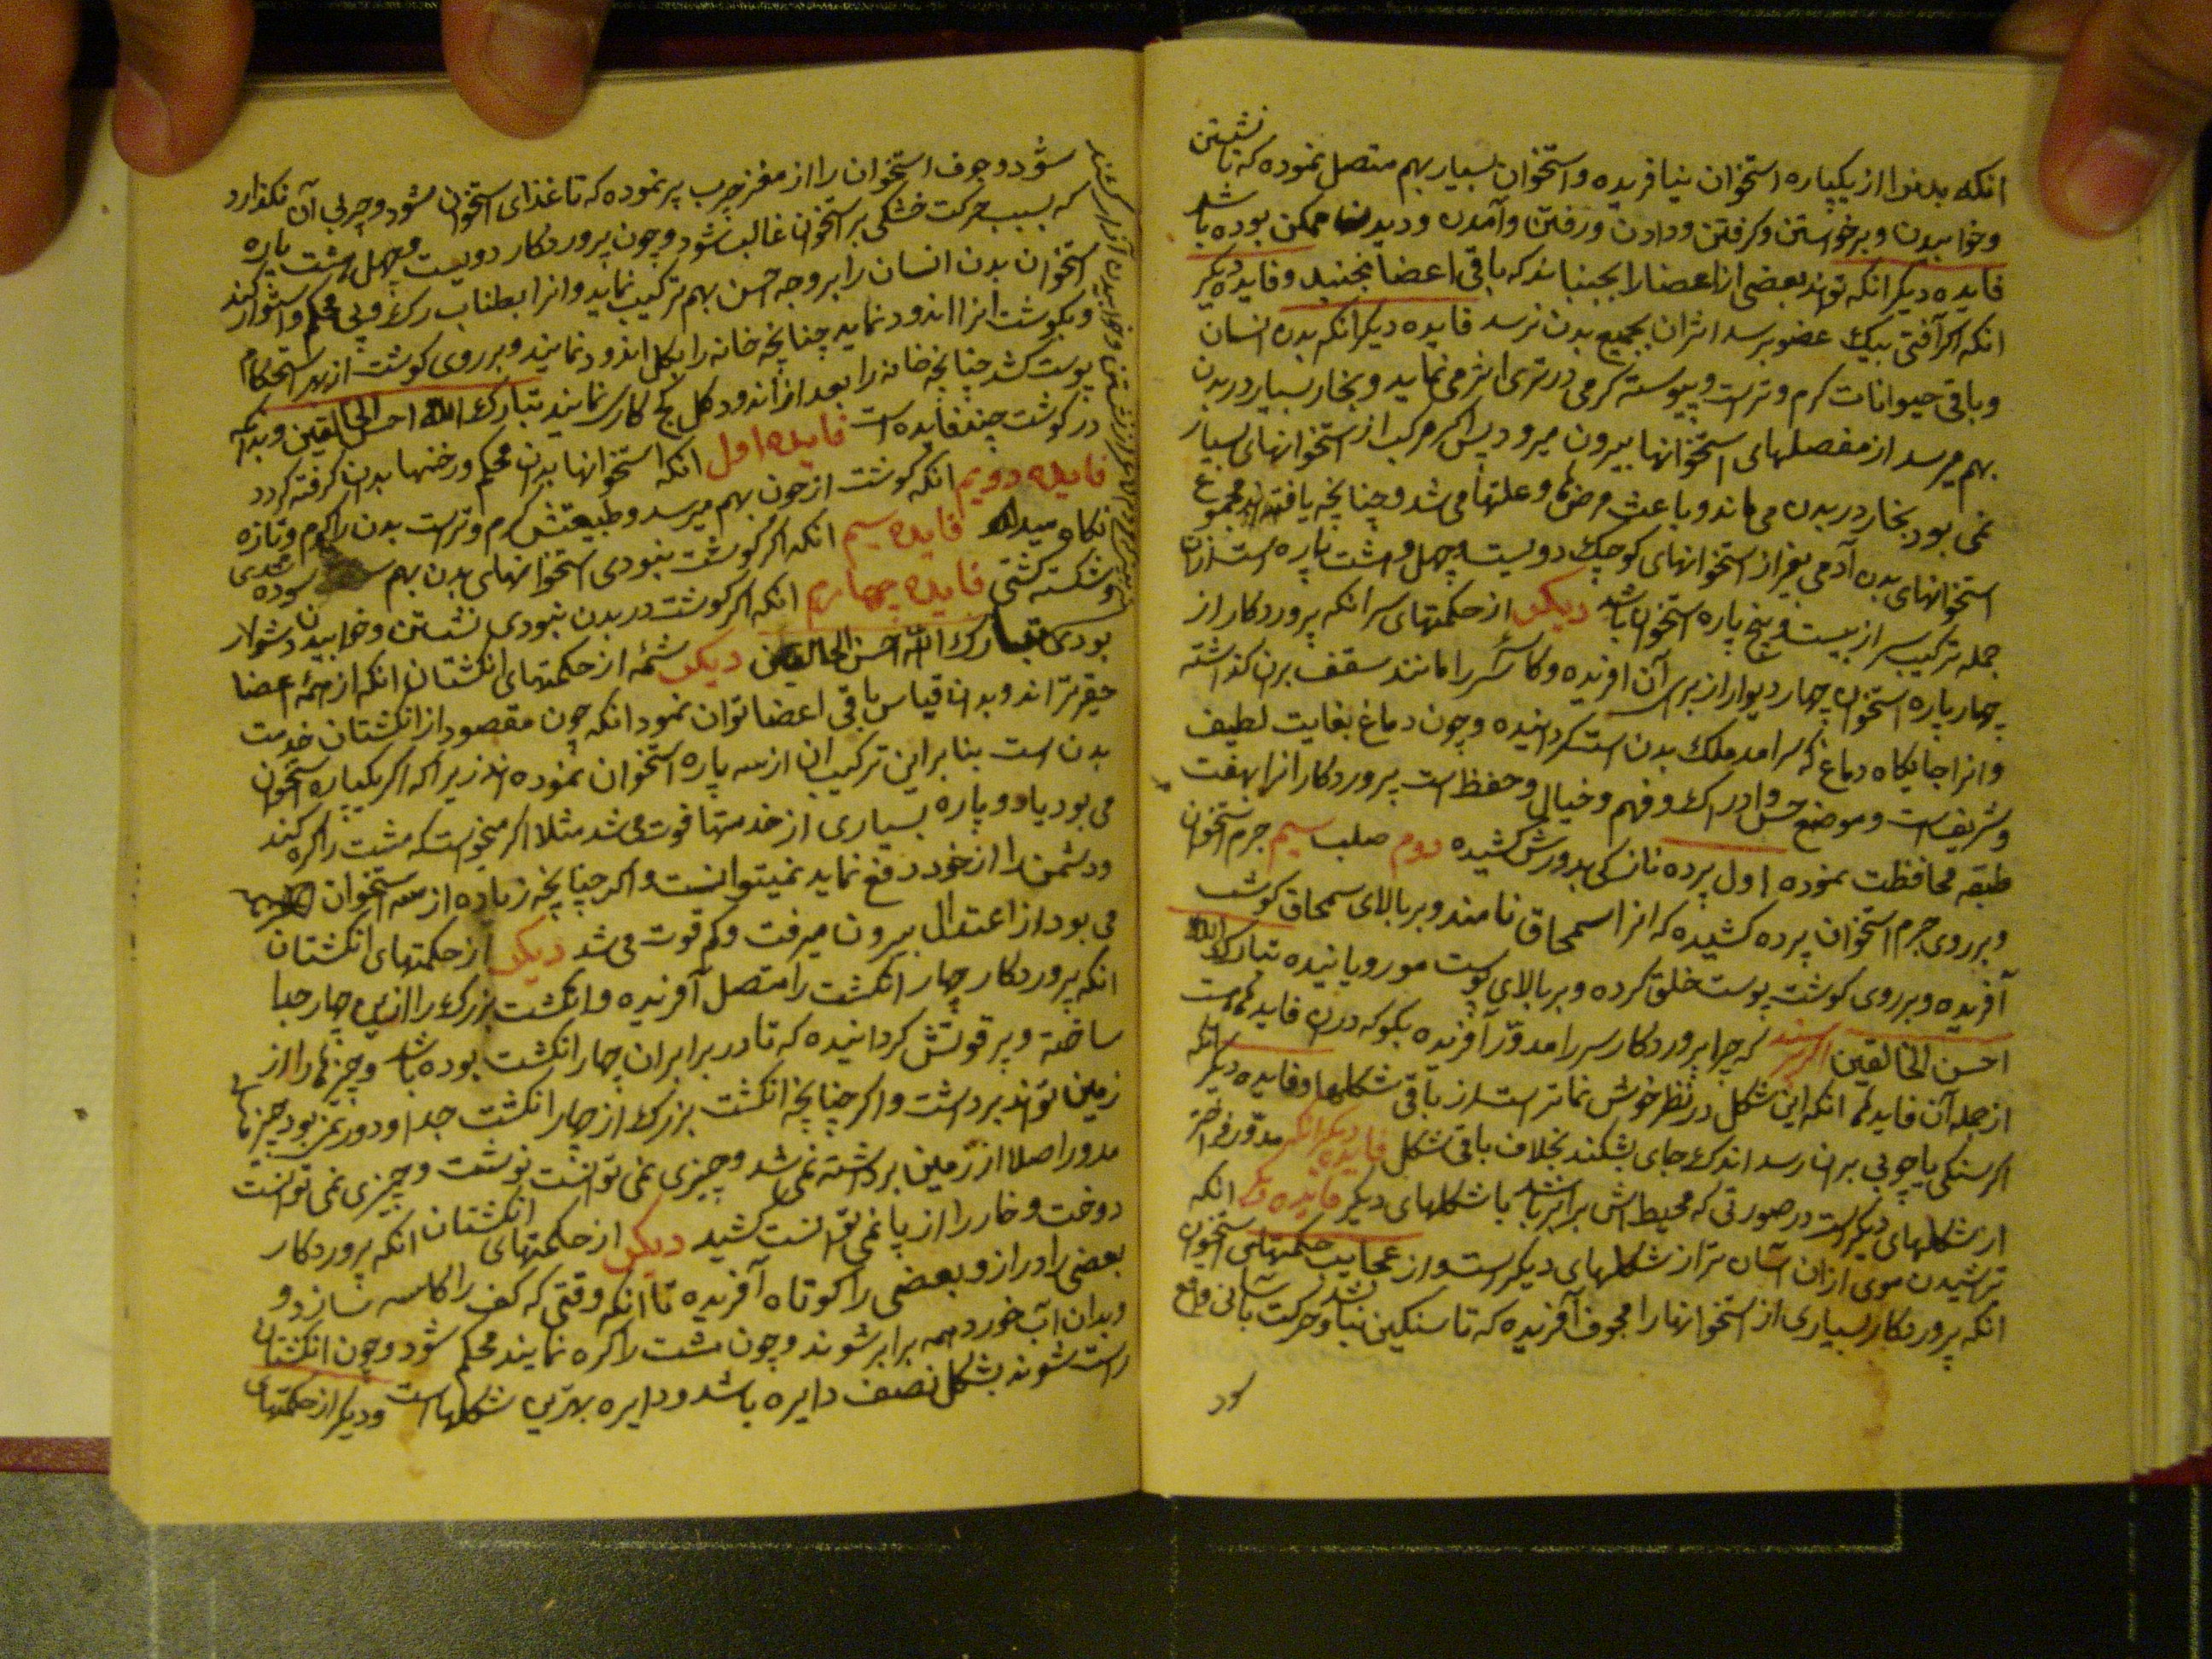 انکه بدنرا از یکپاره استخوان نیافریده و استخوان بسیار بهم متصل نموده که تا نشستن
و خوابیدن و برخواستن و کرفتن و دادن و رفتن و آمدن و دیدن ممکن بوده باشد
فایده دیکر انکه تواند بعضی از اعضا را بجنباند که باقی اعضا نجنبد و فایده دیکر
انکه اکر آفتی بیک عضو برسد اثر ان بجمیع بدن نرسد فایده دیکر انکه بدن انسان
و باقی حیوانات کرم و ترست و پیوسته کرمی در تری اثر می نماید و بخار بسیار در بدن
بهم میرسد از مفصلهای استخوانها بیرون میرود پس اکر مرکب از استخوانهای بسیار
نمی بود بخار در بدن می ماند و باعث مرضها و علتها می شد و چنانچه یافته اند مجموع
استخوانهای بدن آدمی بغیر از استخوانهای کوچک دویست و چهل و هشت پاره است ازان
جمله ترکیب سر از بیست و پنج پاره استخوان باشد دیکر از حکمتهای سر انکه پروردکار از
چهار پاره استخوان چهار دیوار از برای آن افریده و کاسه سر را مانند سقف بران کذاشته
و انرا جایکاه دماغ که سرامد ملک بدن است کردانیده و چون دماغ بغایت لطیف
و شریف است و موضع حس و ادراک و فهم و خیال و حفظ است پروردکار انرا بهفت
طبقه محافظت نموده اول پرده نازکی بدورش کشیده دوم صلب سیم جرم استخوان
و بر روی جرم استخوان پرده کشیده که انرا سمحاق نامند و بر بالای سمحاق کوشت
آفریده و بر روی کوشت پوست خلق کرده و بر بالای پوست مو رویانیده تبارک الله
احسن الخالقین اکر پرسند که چرا پروردکار سر را مدوّر آفریده بکو که درین فایدهاست
از جمله آن فایدها انکه این شکل در نظر خوش نماتر است از باقی شکلها و فایده دیکر انکه
اکر سنکی یا چوبی بران رسد اندک جای بشکند بخلاف باقی شکل فایده دیکر انکه مدوّر فراختر
از شکلهای دیکرست در صورتی که محیطش برابر باشد با شکلهای دیکر فایده دیکر انکه
تراشیدن موی ازان آسان تر از شکلهای دیکرست و از عجایب حکمتهای استخوان
انکه پروردکار بسیاری از استخوانها را مجوف آفریده که تا سنکین نباشد و حرکت باسانی واقع
شود
شود و جوف استخوان را از مغز چرب پر نموده که تا غذای استخوان شود و چربی آن نکذارد
که بسبب حرکت خشکی بر استخوان غالب شود و چون پروردکار دویست و چهل و هشت پاره
استخوان بدن انسان را بر وجه احسن بهم ترکیب نماید و انرا بطناب رک و پی محکم و استوار کند
و بکوشت انرا اندود نماید چنانچه خانه را بکل اندود نمایند و بر روی کوشت از بهر استحکام
پوست کشد چنانچه خانه را بعد از اندود کل کچ کاری نمایند تبارک الله احسن الخالقین و بدانکه
در کوشت چند فایده است فایده اول انکه استخوانها بدان محکم و رخنها بدن کرفته کردد
فایده دویم انکه کوشت از خون بهم میرسد و طبیعتش کرم و ترست بدن را کرم و تازه
نکاه میدارد فایده سیم انکه اکر کوشت نبودی استخوانهای بدن بهم سوده شدی
و شکسته کشتی فایده چهارم انکه اکر کوشت در بدن نبودی نشستن و خوابیدن دشوار
بودی تبارک الله احسن الخالقین دیکر شمه از حکمتهای انکشتان انکه از همه اعضا
حقیرتراند و بدان قیاس باقی اعضا توان نمود انکه چون مقصود از انکشتان خدمت
بدن است بنابراین ترکیب ان از سه پاره استخوان نموده اند زیرا که اکر یکپاره استخوان
می بود یا دو پاره بسیاری از خدمتها فوت می شد مثلا اکر میخواست که مشت را کره کند
و دشمن را از خود دفع نماید نمیتوانست و اکر چنانچه زیاده از سه استخوان
می بود از اعتدال بیرون میرفت و کم قوت می شد دیکر از حکمتهای انکشتان
انکه پروردکار چهار انکشت را متصل آفریده و انکشت بزرک را ازین چهار جدا
ساخته و پر قوتش کردانیده که تا در برابر ان چهار انکشت بوده باشد و چیزها را از
زمین تواند برداشت و اکر چنانچه انکشت بزرک از چهار انکشت جدا و دور نمی بود چیزهای
مدور اصلا از زمین برداشته نمی شد و چیزی نمی توانست نوشت و چیزی نمی توانست
دوخت و خار را از پا نمی توانست کشید دیکر از حکمتهای انکشتان انکه پروردکار
بعضی را دراز و بعضی را کوتاه آفریده تا انکه وقتی که کف را کاسه سازد و
و بدان اب خورد همه برابر شوند و چون مشت را کره نمایند محکم شود و چون انکشتان
راست شوند بشکل نصف دایره باشد و دایره بهترین شکلهاست و دیکر از حکمتهای